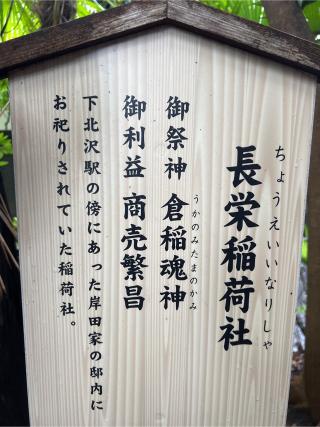 ちょうえいいなりしゃ
長栄稲荷社
うかのみたまのかみ
御祭神 倉稲魂神
御利益 商売繁昌
下北沢駅の傍にあった岸田家の邸内に
お祀りされていた稲荷社。